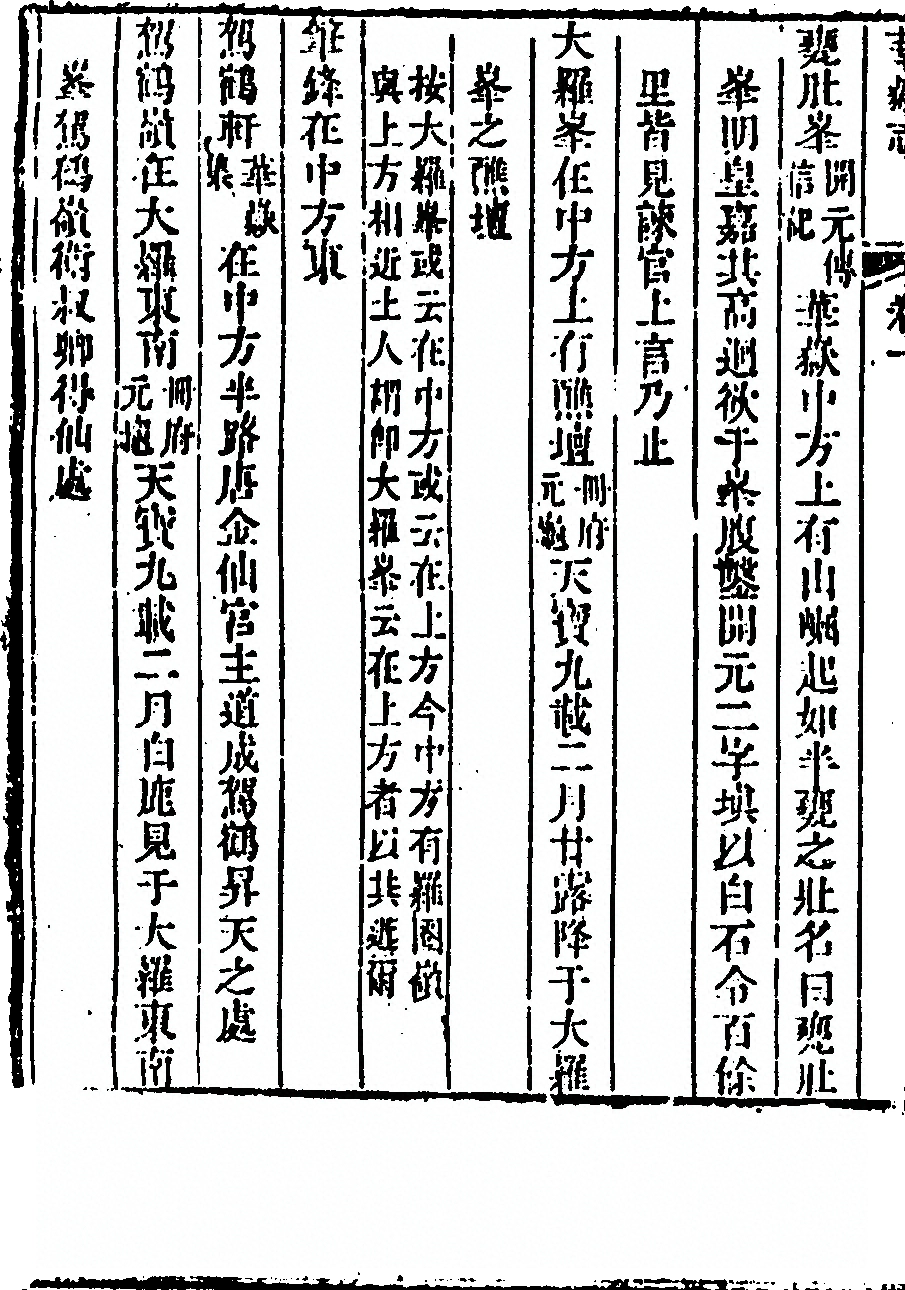 華嶽志　卷一
甕肚峯開元傳信記華嶽中方上有山崛起如半甕之壯名曰甕壯
峯明皇嘉其高迥欲于峯腹鑿開元二字填以白石令百餘
里皆見諫官上言乃止
大羅峯在中方上有醮壇冊府元龜天寶九載二月甘露降于大羅
峯之醮壇
按大羅峯或云在中方或云在上方今中方有羅圈
與上方相近土人謂即大羅峯云在上方者以其近爾
在中方東
駕鶴軒華嶽在中方半路唐金仙宮主道成駕鶴昇天之處
駕鶴嶺在大羅東南冊府元龜天寶九載二月白鹿見于大羅東南
峯駕鶴嶺衛叔卿得仙處